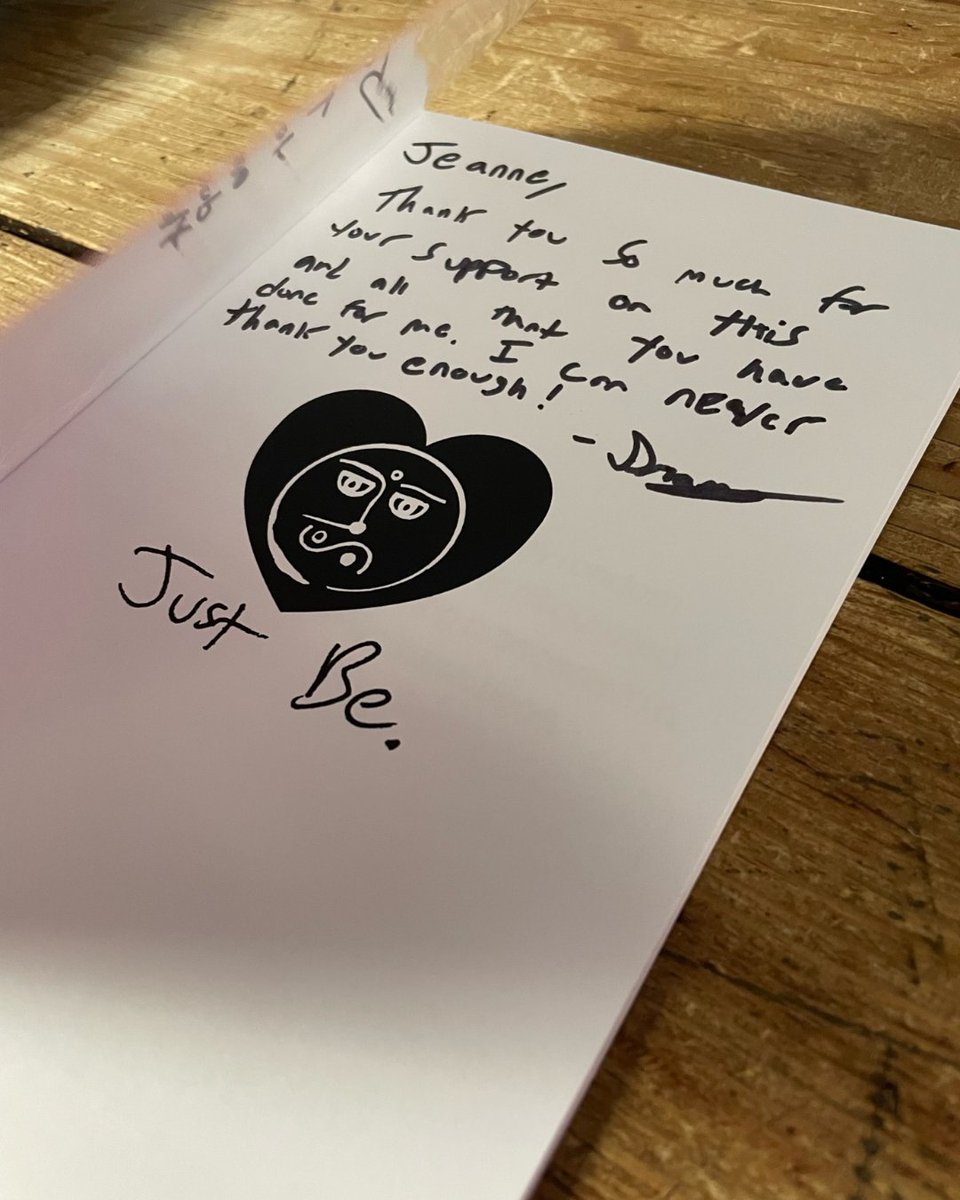 Jeanne,
Thank you so much for
your support on this
and all that you have
done for me. I can never
thank you enough!
Just Be.